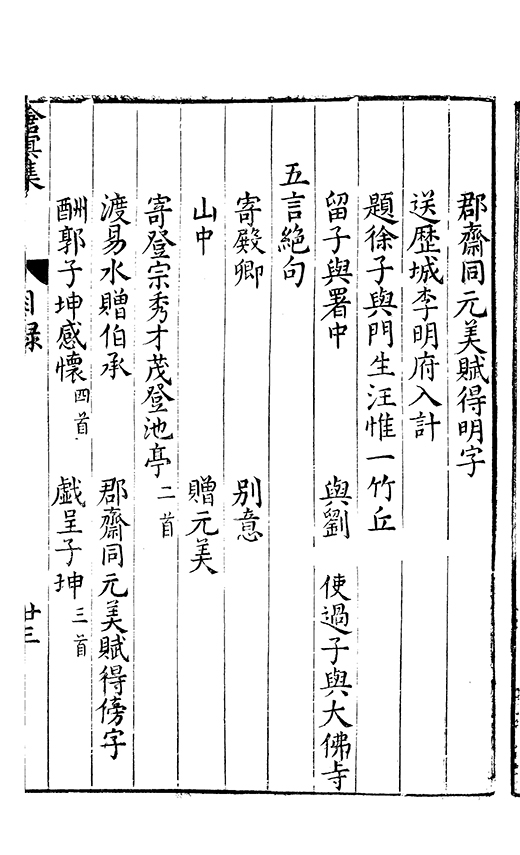 郡齋同元美賦得明字
送歷城李明府入計
題徐子與門生汪惟一竹丘
留子與署中 與劉 使過子與大佛寺
五言絶句
寄殿卿 别意
山中 贈元美
寄登宗秀才茂登池亭二首
渡易水贈伯承 郡齋同元美賦得傍字
酬郭子坤感懷四首 戯呈子坤三首
滄溟集 目録 廿三